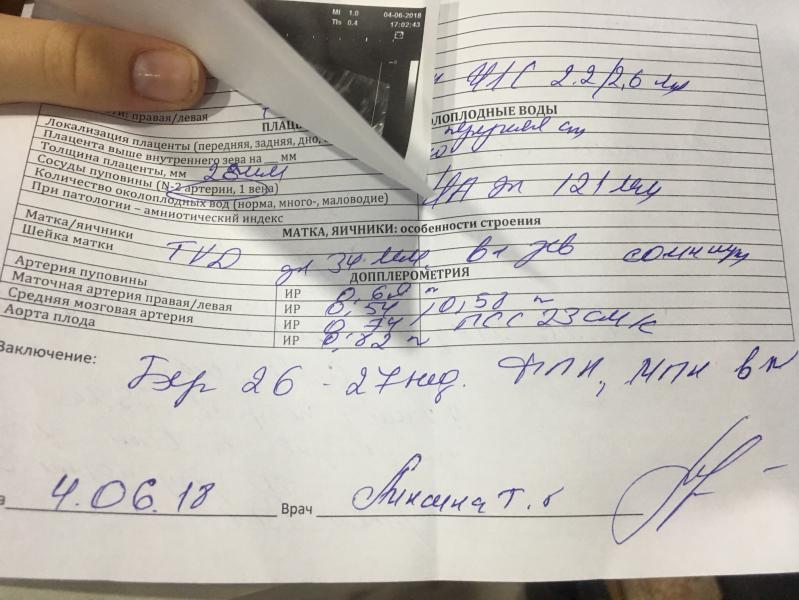 MI 1.0
TIs 0.4
04-06-2018
17:02:43
ЧЛС 2.2/2,6 мм
правая/левая
ОЛОПЛОДНЫЕ ВОДЫ
Локализация плаценты (передняя, задняя, дно,
Плацента выше внутреннего зева на __ мм
Толщина плаценты, мм 28мм
Сосуды пуповины (N-2 артерии, 1 вена)
Количество околоплодных вод (норма, много-, маловодие)
При патологии – амниотический индекс
121 мм
МАТКА, ЯИЧНИКИ: особенности строения
Матка/яичники
Шейка матки TVD дл 34 мм, вн зев сомкнут
ДОППЛЕРОМЕТРИЯ
Артерия пуповины ИР 0,60 N
Маточная артерия правая/левая ИР 0,54/0,58 N
Средняя мозговая артерия ИР 0,74 ПСС 23 см/с
Аорта плода ИР 0,82 N
Заключение:
Бер 26 - 27 нед. ФПК, МПК в N
4.06.18 Врач